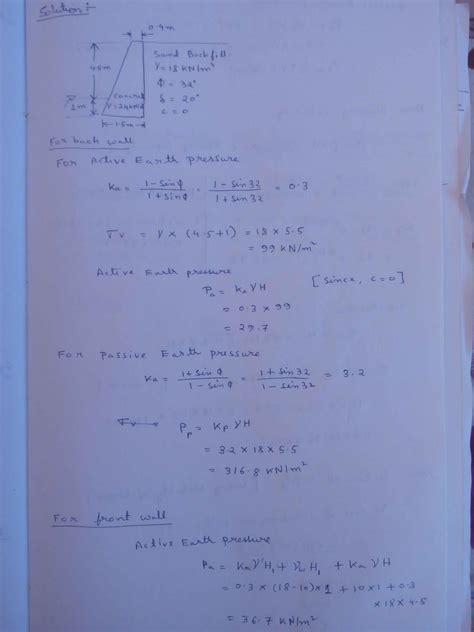 Solution:-
0.4m
4.5m
1m
concrete
γ=24kN/
1.5m
Sand Backfill
γ = 18 KN/m²
ϕ = 32°
δ = 20°
c = 0
For back wall
For Active Earth pressure
Ka = 1-Sinϕ / 1+Sinϕ = 1-Sin32 / 1+Sin32 = 0.3
σv = γ × (4.5+1) = 18 × 5.5
= 99 KN/m²
Active Earth pressure
Pa = Ka γH [Since, c=0]
= 0.3 × 99
= 29.7
For Passive Earth pressure
Ka = 1+Sinϕ / 1-Sinϕ = 1+Sin32 / 1-Sin32 = 3.2
Pp = Kp γH
= 3.2 × 18 × 5.5
= 316.8 KN/m²
For front wall
Active Earth pressure
Pa = Ka γ'H₁ + γw H₁ + Ka γH
= 0.3 × (18-10) × 1 + 10×1 + 0.3
×18×4.5
= 36.7 KN/m²